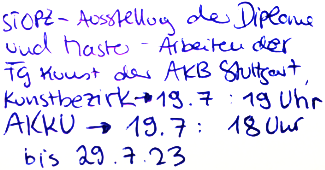 STOPZ - Ausstellug de Diplome
und Maste - Arbeiten der
Fg Kunst der AKB Stuttgart,
Kunstbezirk → 19.7 : 19 Uhr
AKKU → 19.7 : 18 Uhr
bis 29.7.23